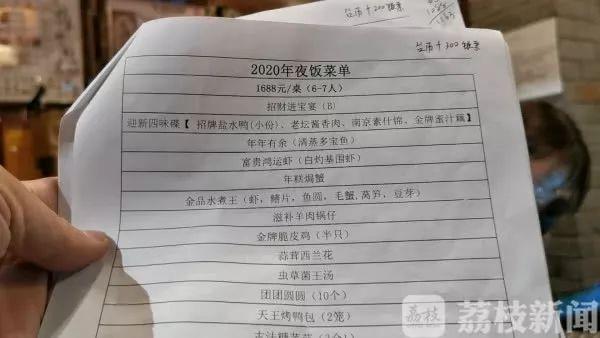 2020年夜饭菜单
1688元/桌（6-7人）
招财进宝宴（B）
迎新四味碟【 招牌盐水鸭(小份)、老坛酱香肉、南京素什锦、金牌蜜汁藕】
年年有余（清蒸多宝鱼）
富贵鸿运虾（白灼基围虾）
年糕焗蟹
金品水煮王（虾，鳝片，鱼圆，毛蟹,莴笋，豆芽）
滋补羊肉锅仔
金牌脆皮鸡（半只）
蒜茸西兰花
虫草菌王汤
团团圆圆（10个）
天王烤鸭包（2笼）
荔枝 荔枝新闻